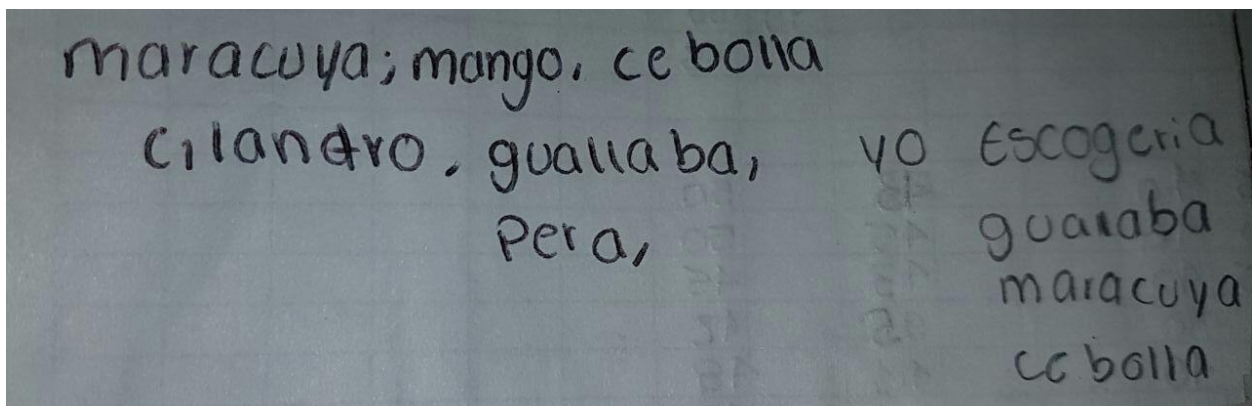 maracuya; mango, cebolla
cilandro, guallaba, yo Escogeria
Pera, guaiaba
maracuya
cebolla